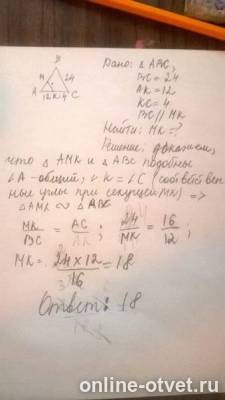 B
M 24
A 12 K 4 C
Дано: △ ABC,
BC = 24
AK = 12
KC = 4
BC // MK
Найти: MK = ?
Решение: докажем,
что △ AMK и △ ABC подобны
∠A - общий, ∠K = ∠C (соответствен
ные углы при секущей MK) =>
△ AMK ∾ △ ABC
MK/BC = AC/AK ; 24/MK = 16/12 ;
MK = 24 × 12/16 = 18
Ответ: 18
online-otvet.ru